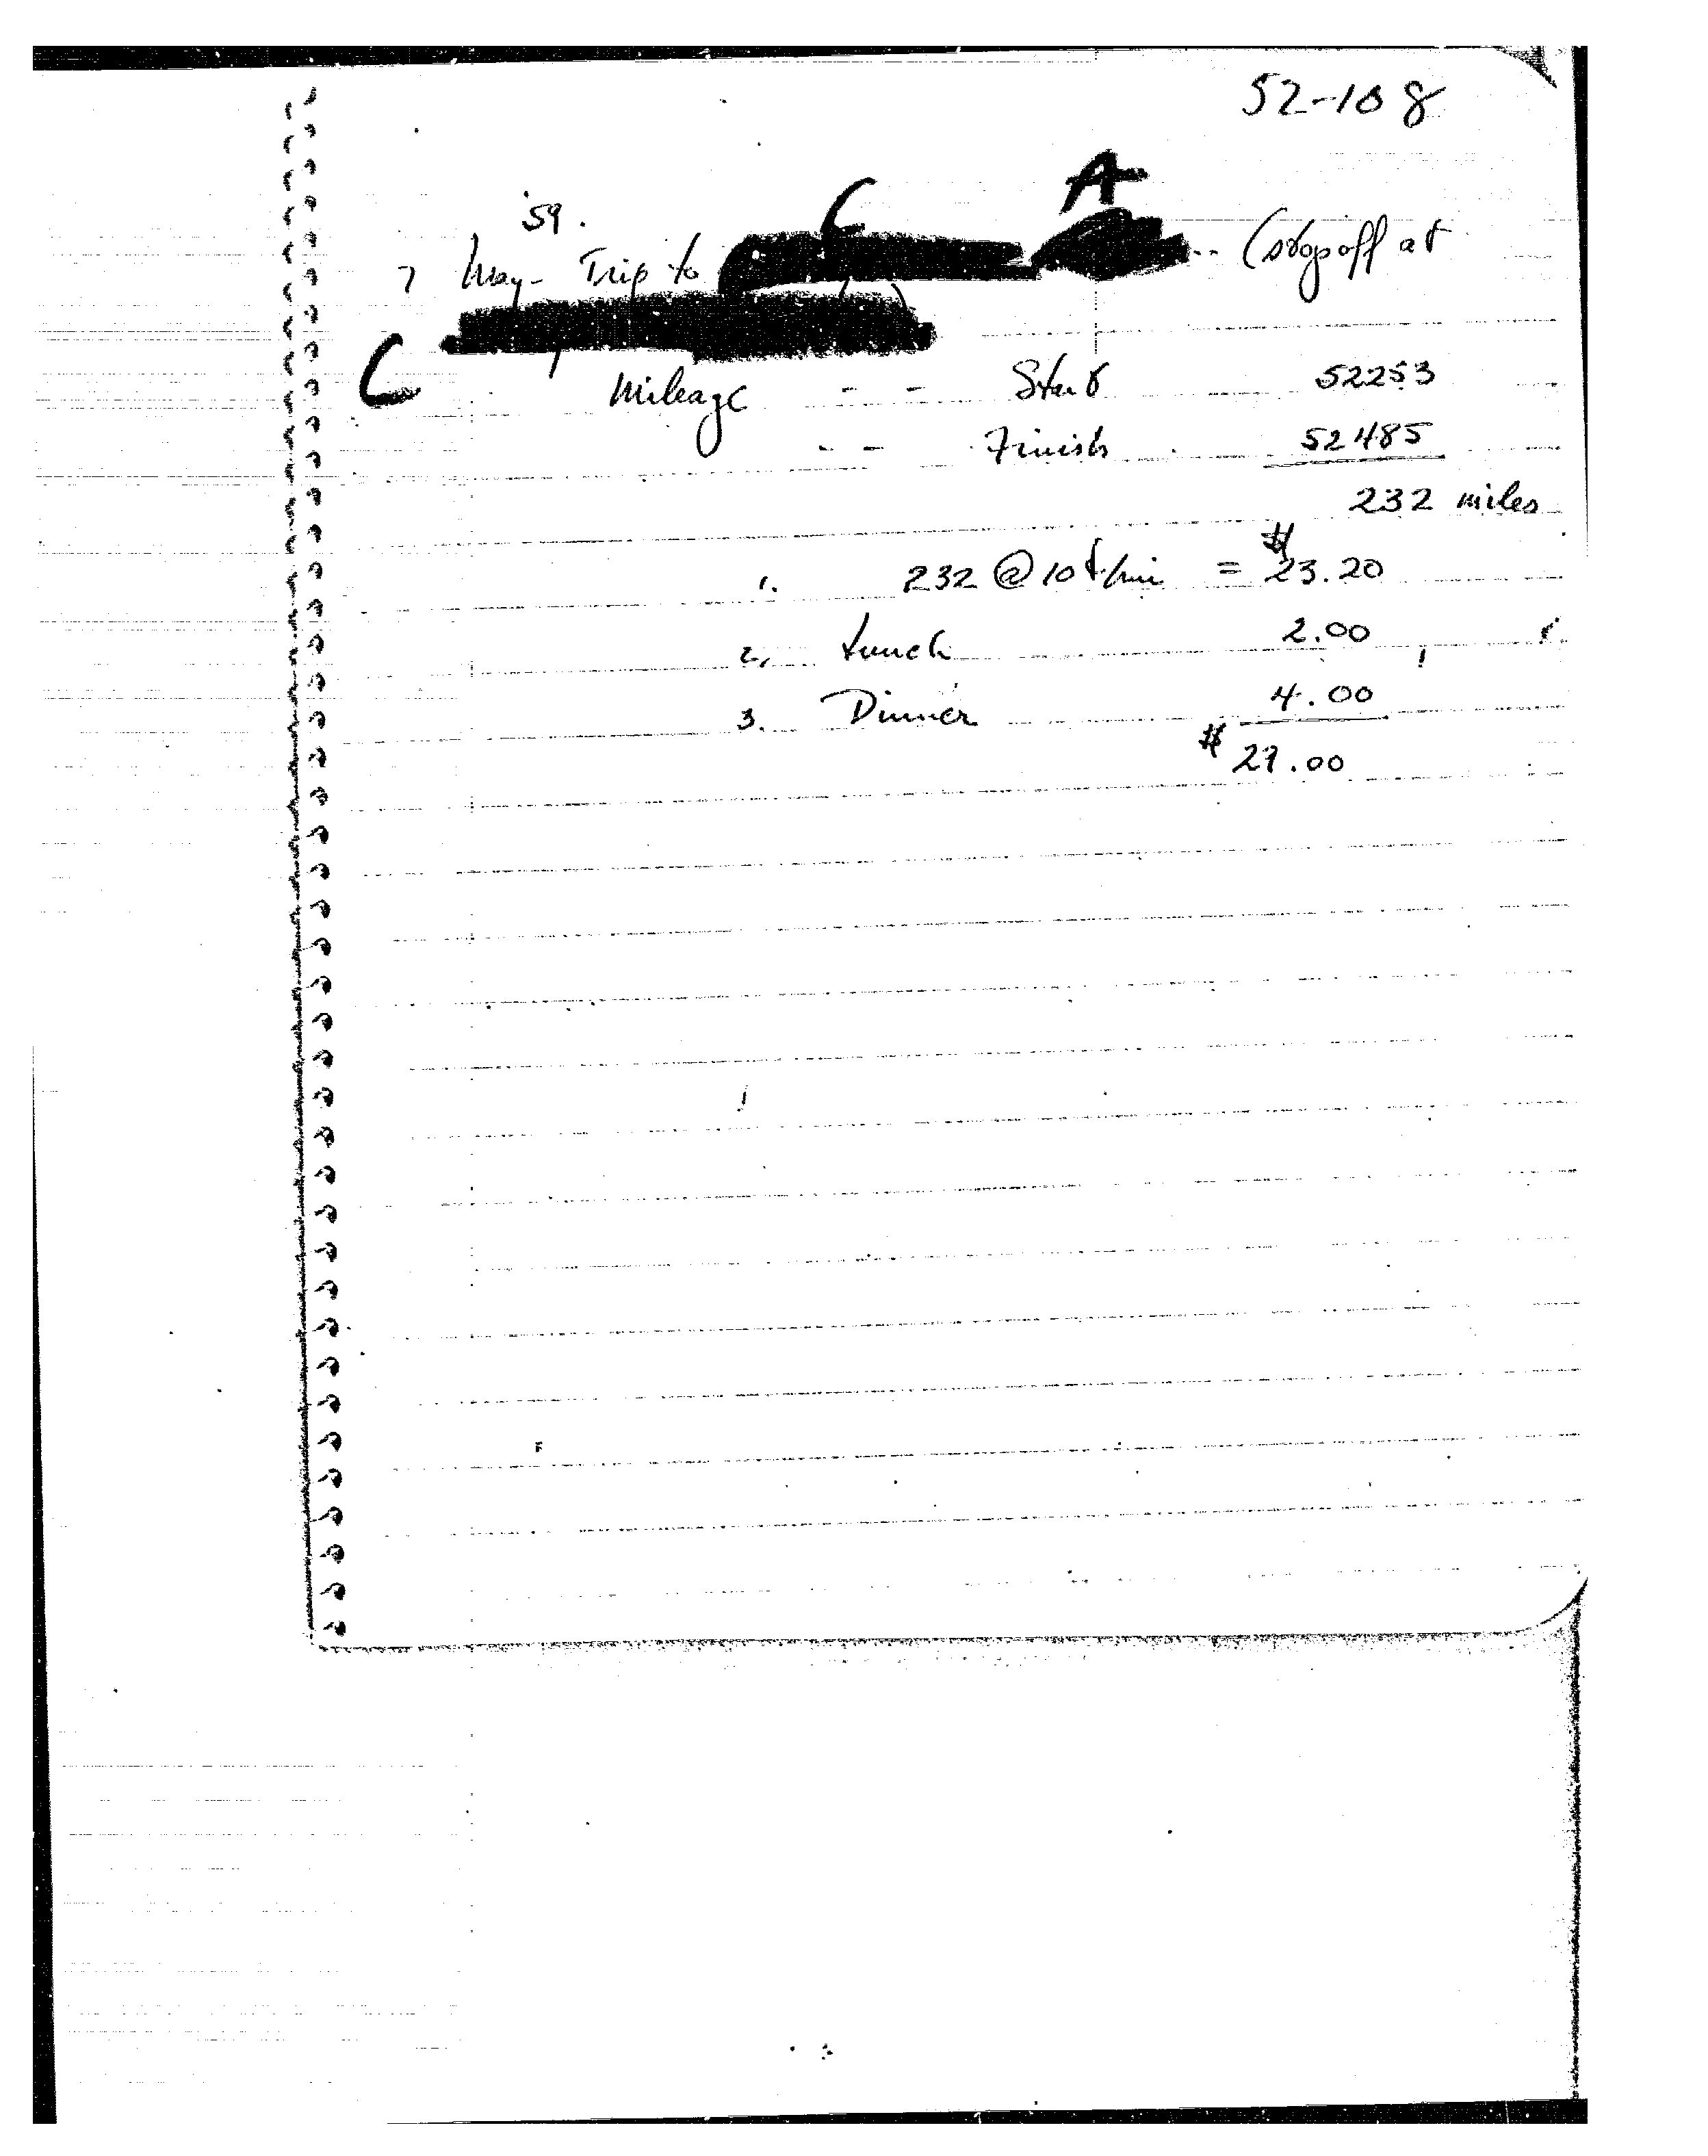 52-108
C A
'59.
7 May - Trip to -- (stop off at
C
Mileage -- Start 52253
-- Finish 52485
232 miles
1. 232 @ 10¢/mi = $23.20
2. Lunch 2.00
3. Dinner 4.00
$ 29.00